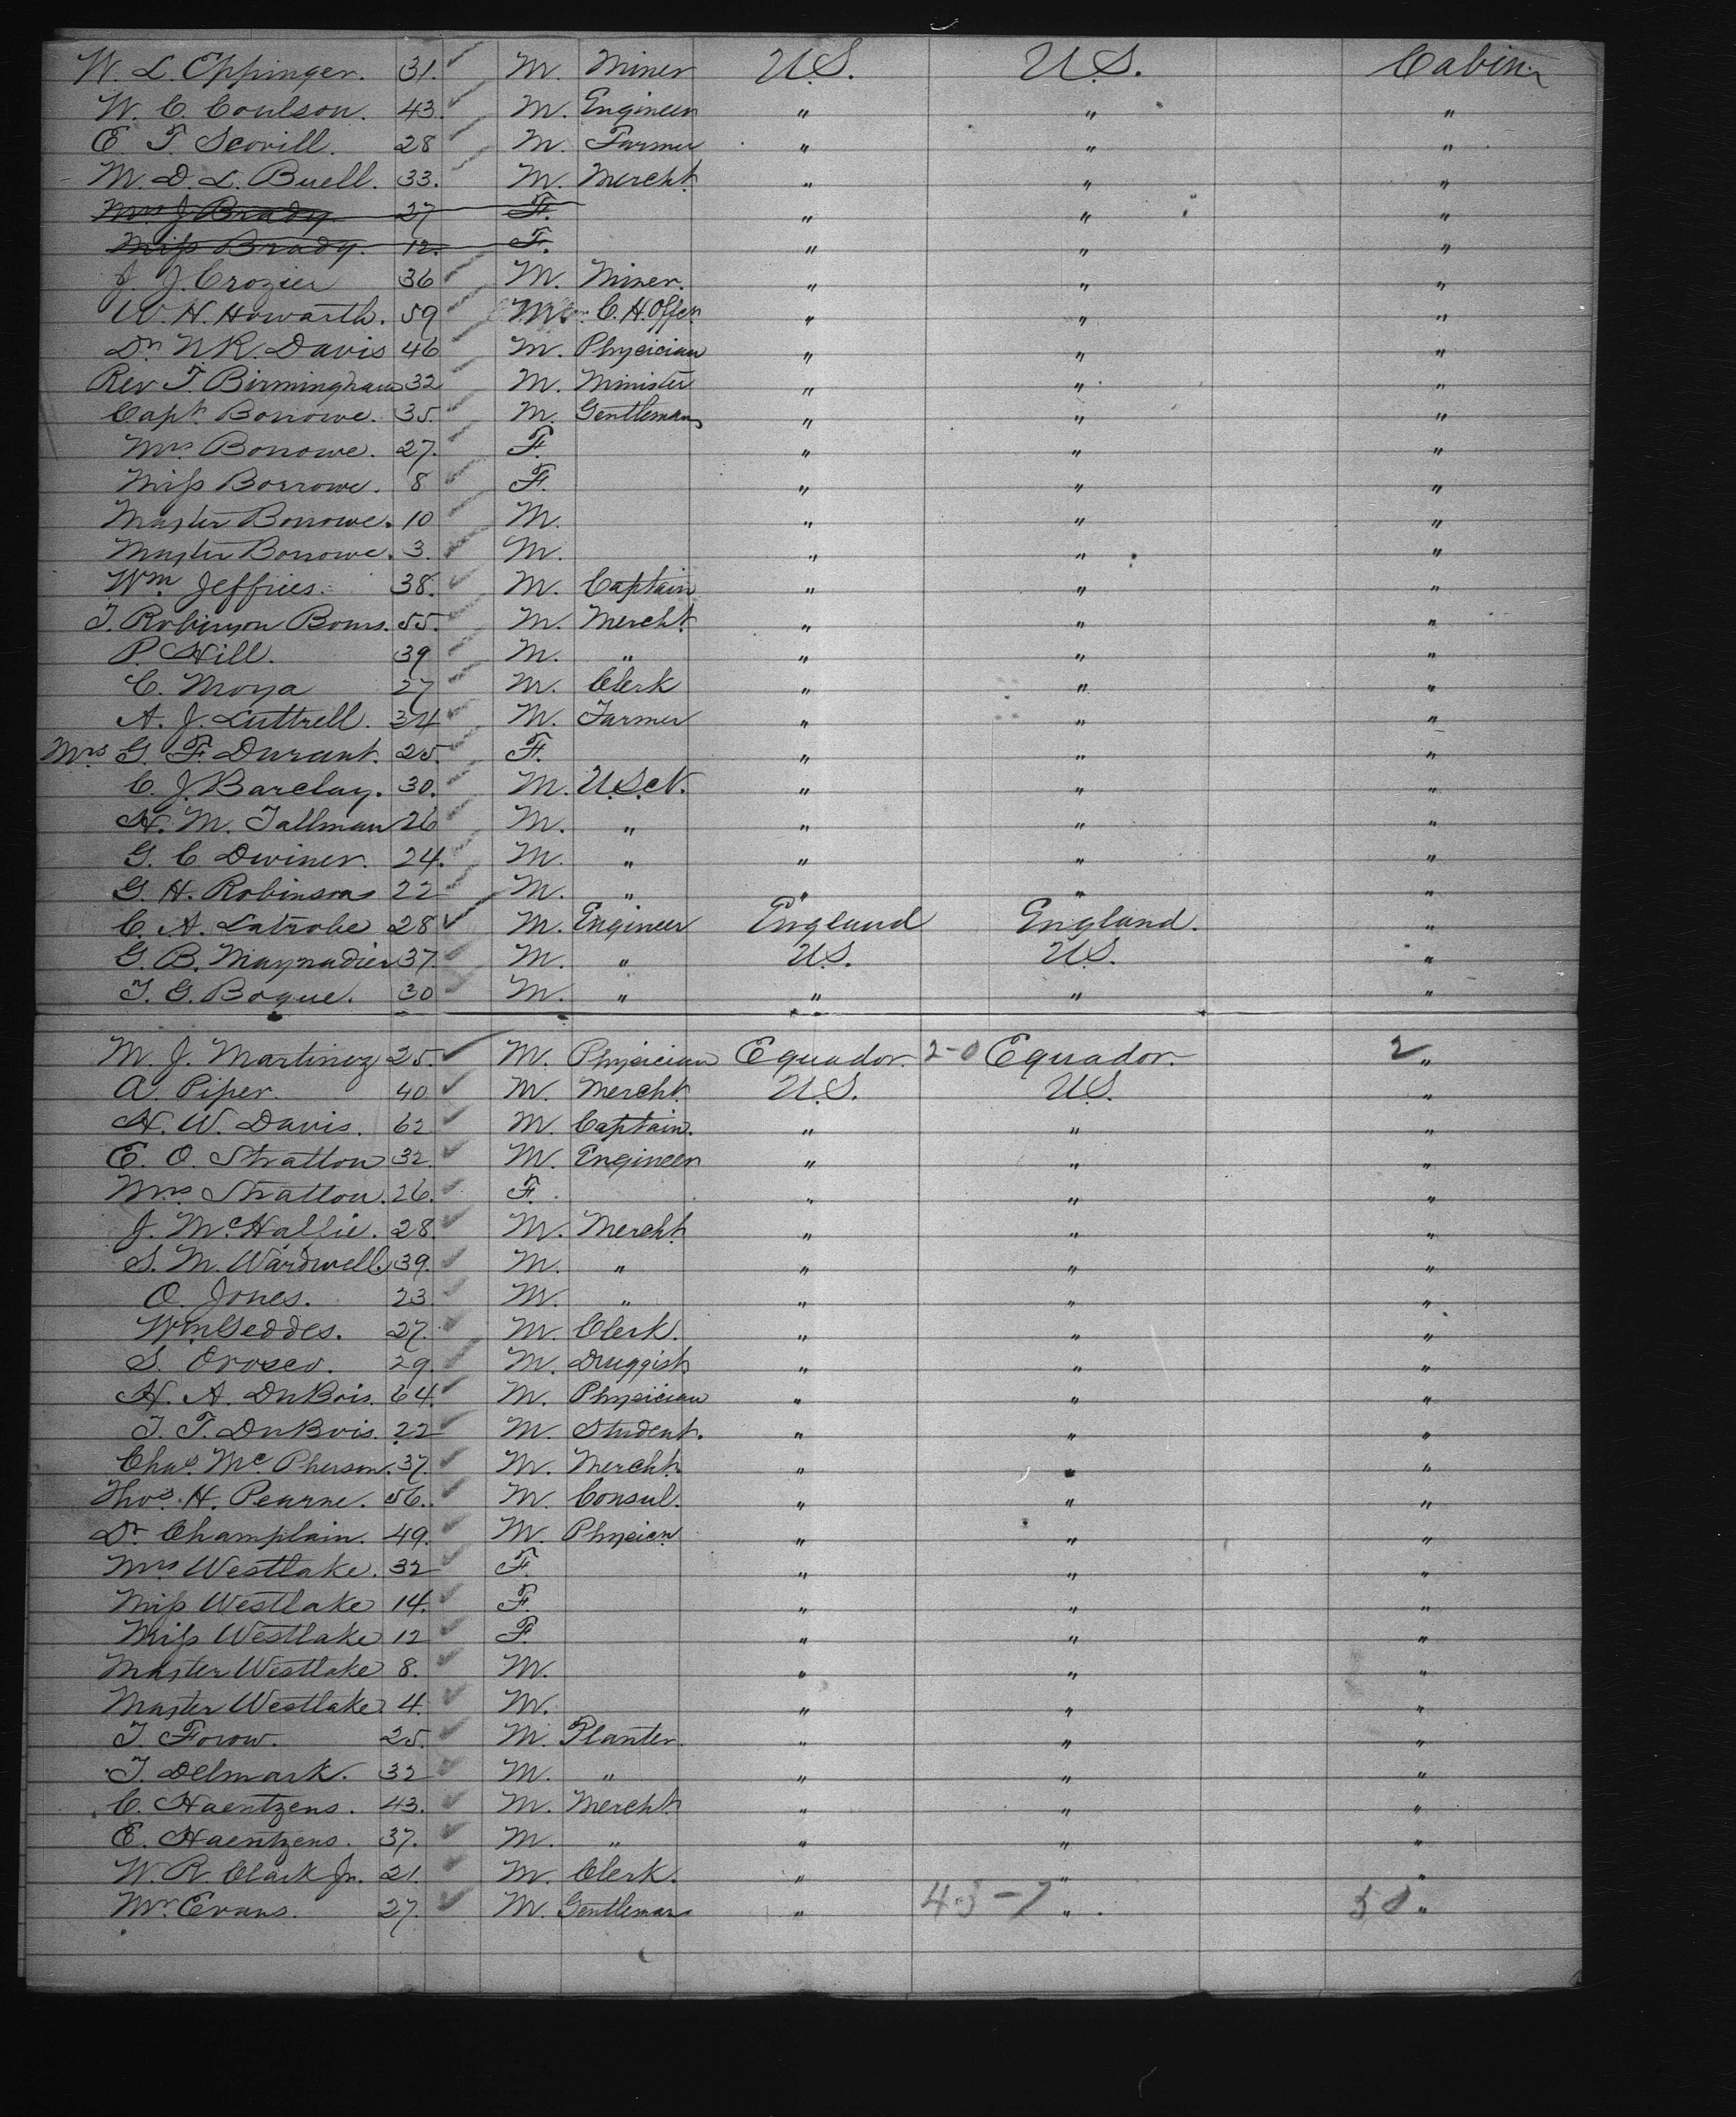 W. L. Eppinger. 31. M. Miner U.S. U.S. Cabin
W. C. Coulson. 43. M. Engineer " " "
E. T. Scovill. 28 M. Farmer " " "
M. D. L. Buell. 33. M. Mercht " " "
Mrs J Brady 27 F. " " "
Miss Brady. 12. F. " " "
J. J. Crozier 36 M. Miner. " " "
W. H. Howarth. 59 M. C. H. Offcr " " "
Dr N. R. Davis 46 M. Physician " " "
Rev T. Birmingham 32 M. Minister " " "
Capt. Borrowe. 35. M. Gentleman " " "
Mrs Borrowe. 27. F. " " "
Miss Borrowe. 8 F. " " "
Master Borrowe. 10 M. " " "
Master Borrowe. 3. M. " " "
Wm Jeffries. 38. M. Captain " " "
T. Robinson Bours. 55. M. Mercht " " "
P. Hill. 39 M. " " " "
C. Moya 27 M. Clerk " " "
A. J. Luttrell. 34 M. Farmer " " "
Mrs G. F. Durant. 25. F. " " "
C. J. Barclay. 30. M. U.S.N. " " "
H. M. Tallman 26 M. " " " "
G. C. Dwiner. 24. M. " " " "
G. H. Robinson 22 M. " " " "
C. A. Latrobe 28 M. Engineer England England. "
G. B. Maynadier 37. M. " U.S. U.S. "
T. G. Bogue. 30 M. " " " "
M. J. Martinez 25. M. Physician Equador. 2-0 Equador. 2 "
A. Piper. 40 M. Mercht U.S. U.S. "
H. W. Davis. 62 M. Captain. " " "
E. O. Stratton 32. M. Engineer " " "
Mrs Stratton. 26. F. " " "
J. McHallie. 28. M. Mercht " " "
S. M. Wardwell. 39. M. " " " "
O. Jones. 23 M. " " " "
Wm Geddes. 27. M. Clerk. " " "
S. Orosco. 29. M. Druggist " " "
H. A. DuBois. 64. M. Physician " " "
T. T. DuBois. 22 M. Student. " " "
Chas. McPherson. 37. M. Mercht. " " "
Thos. H. Pearne. 56. M. Consul. " " "
Dr Champlain. 49. M. Physicn " " "
Mrs Westlake. 32 F. " " "
Miss Westlake 14. F. " " "
Miss Westlake 12 F. " " "
Master Westlake 8. M. " " "
Master Westlake 4. M. " " "
T. Forow. 25. M. Planter. " " "
T. Delmark. 32 M. " " " "
C. Haentzens. 43. M. Mercht " " "
E. Haentzens. 37. M. " " " "
W. R. Clark Jr. 21. M. Clerk. " " "
Mr Evans. 27. M. Gentleman " "